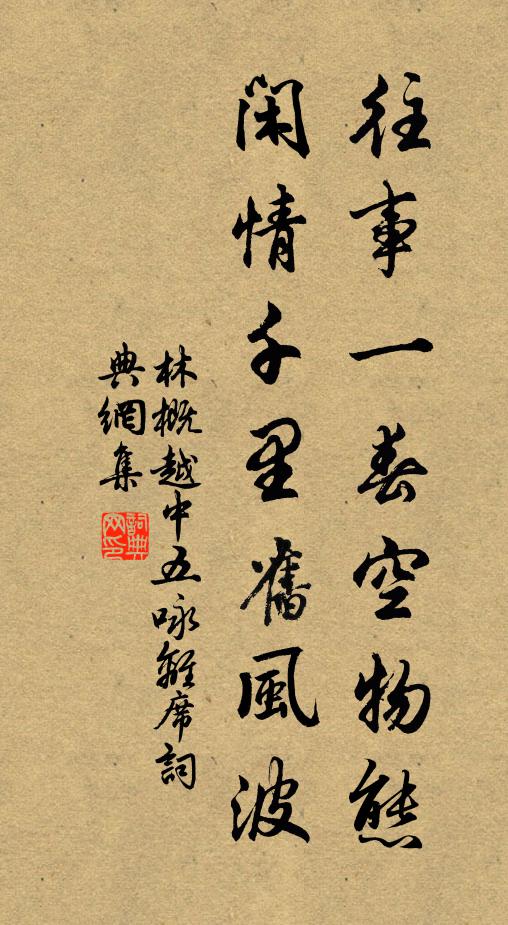 往事一春空物態
閑情千里舊風波
林概越中五咏離席詞
典網集
詞典
网印